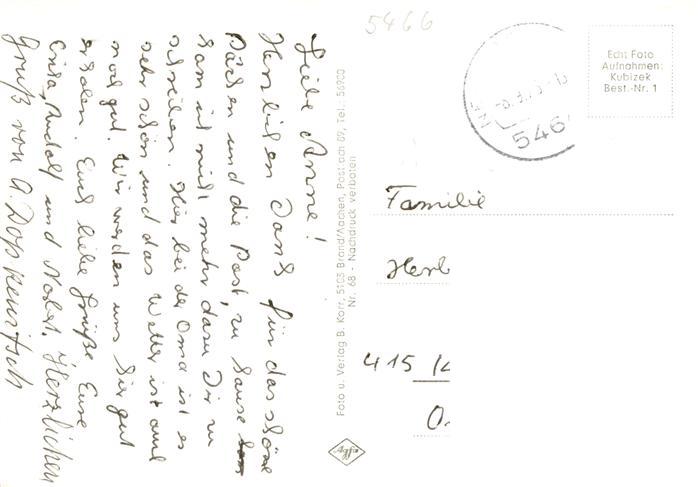 Liebe Anne!
Herzlichen Dank für das schöne
Päckchen und die Post, zu Hause
kam ich nicht mehr dazu Dir zu
schreiben. Hier bei der Oma ist es
sehr schön und das Wetter ist auch
noch gut. Wir werden uns hier gut
erholen. Euch liebe Grüße Eure
Erika, Rudolf und Norbert. Herzlichen
Gruß von A.
Foto u. Verlag B. Korr, 5103 Brand/Aachen, Postfach 89, Tel.: 56900
Nr. 68 - Nachdruck verboten
Agfa
5466
546
Echt Foto
Aufnahmen:
Kubizek
Best.-Nr. 1
Familie
Herb
415 K